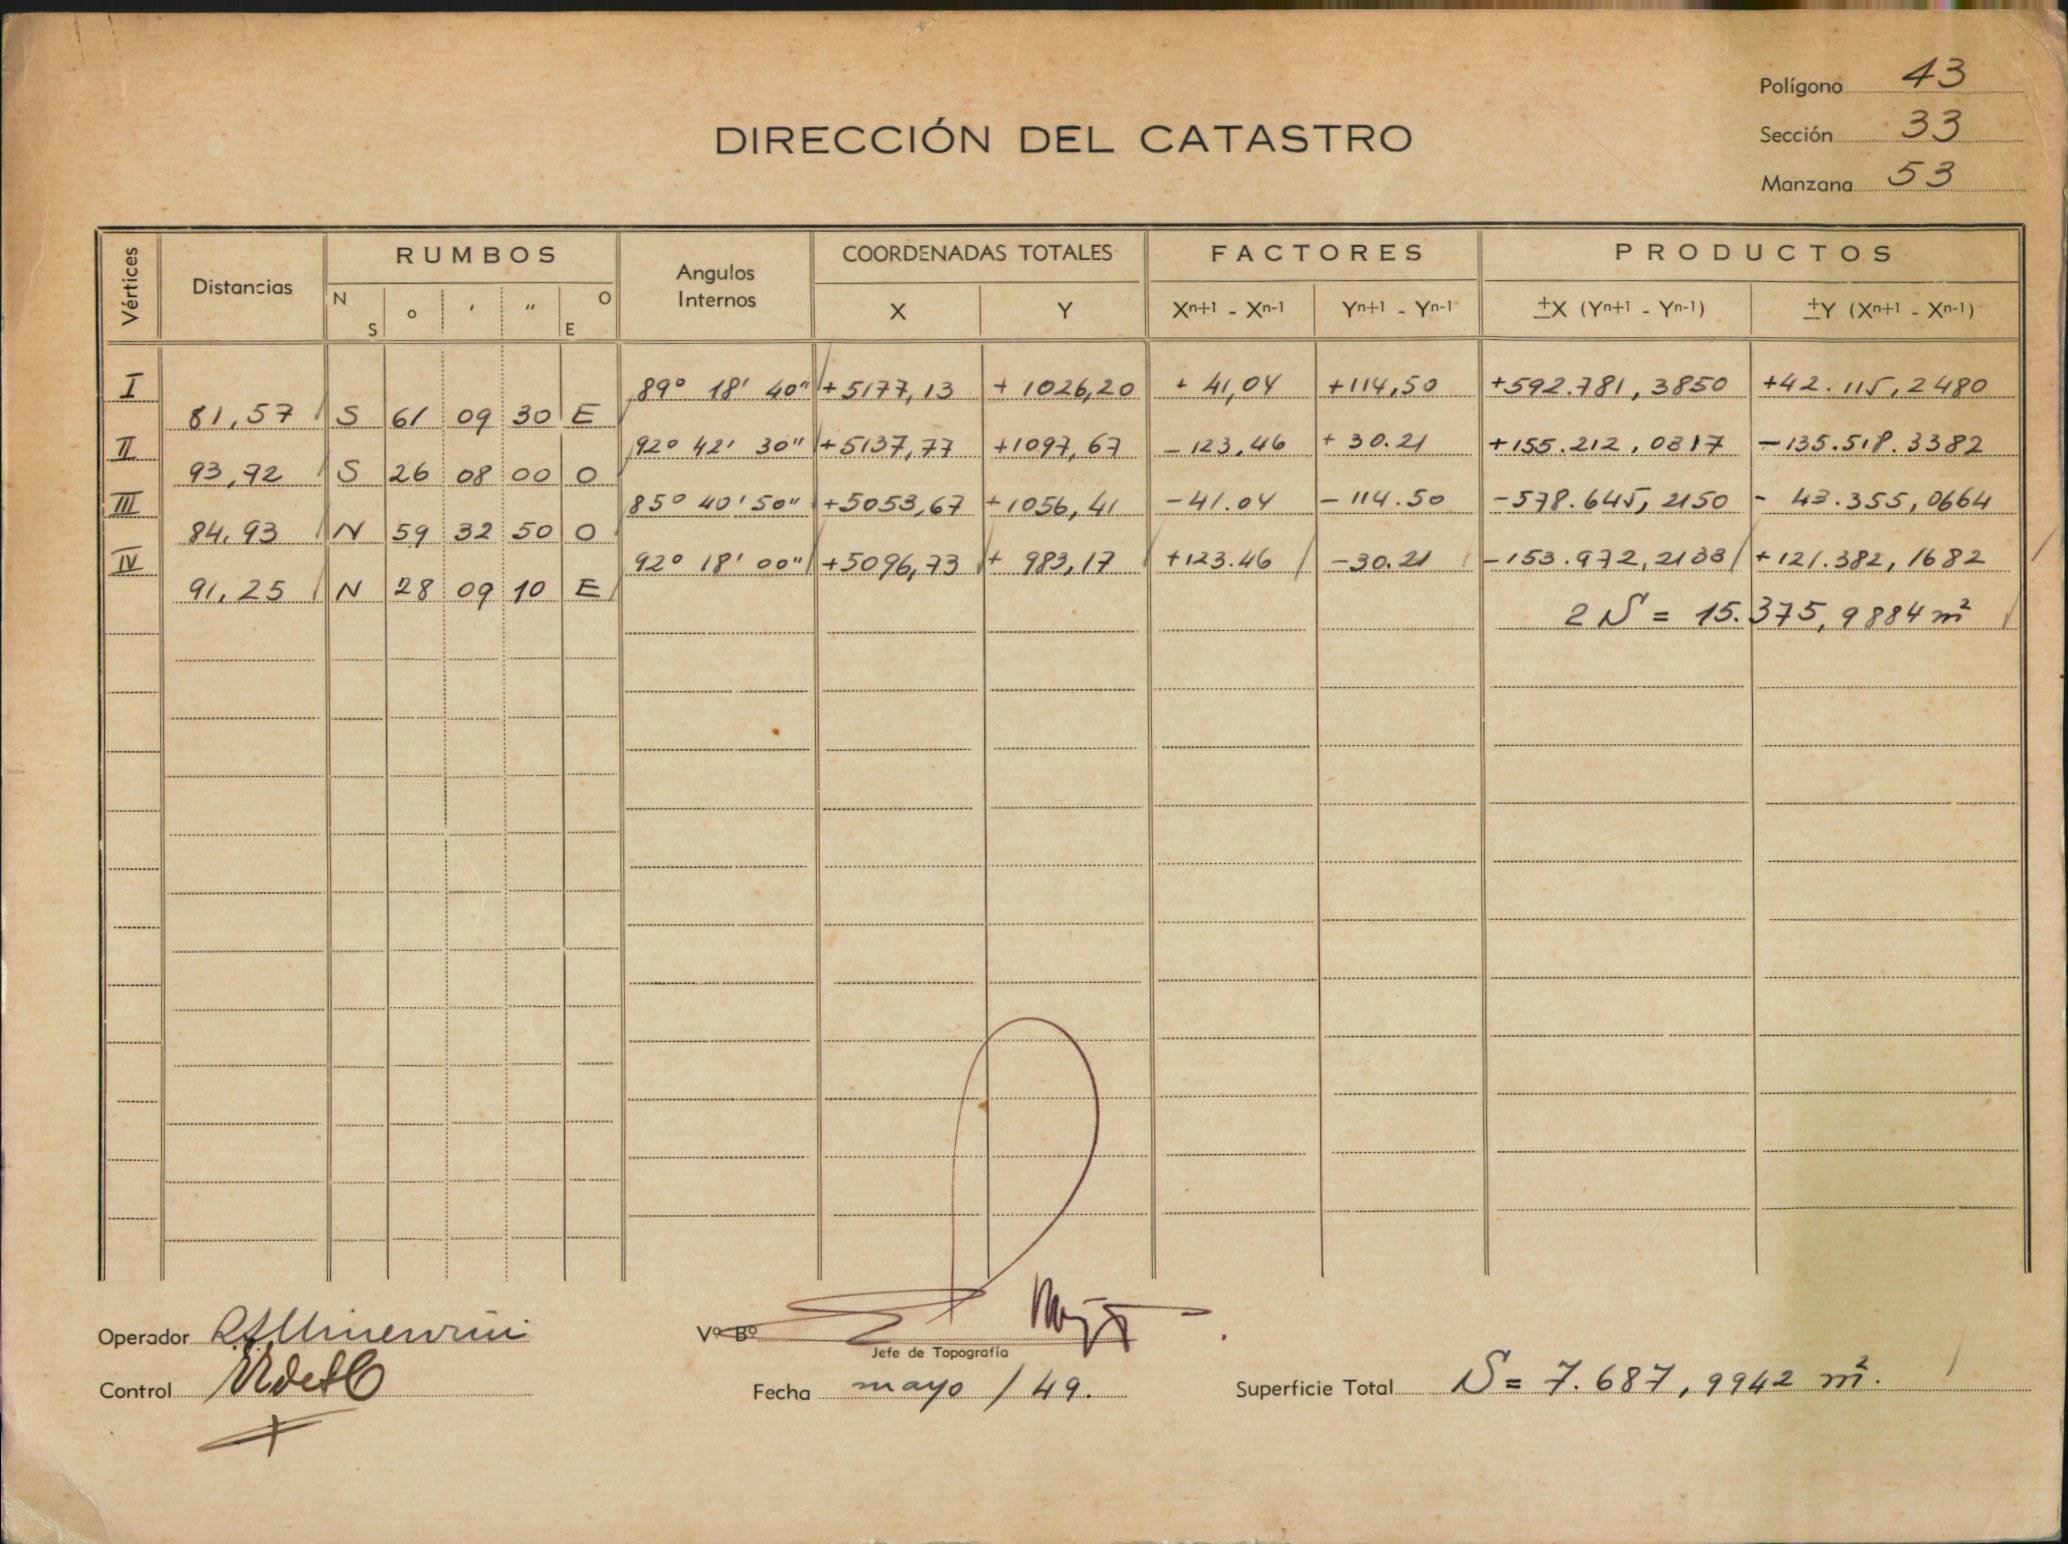 Polígono 43
DIRECCIÓN DEL CATASTRO
Sección 33
Manzana 53
Vértices Distancias RUMBOS Angulos Internos COORDENADAS TOTALES FACTORES PRODUCTOS
N S ° ' " O E X Y Xn+1 - Xn-1 Yn+1 - Yn-1 ±X (Yn+1 - Yn-1) ±Y (Xn+1 - Xn-1)
I 89° 18' 40" +5177,13 + 1026,20 + 41,04 +114,50 +592.781,3850 +42.115,2480
81,57 S 61 09 30 E
II 92° 42' 30" +5137,77 +1097,67 -123,46 + 30.21 +155.212,0317 -135.518.3382
93,92 S 26 08 00 O
III 85° 40' 50" +5053,67 +1056,41 -41.04 -114.50 -578.645,2150 - 43.355,0664
84,93 N 59 32 50 O
IV 92° 18' 00" +5096,73 + 983,17 +123.46 -30.21 -153.972,2133 +121.382,1682
91,25 N 28 09 10 E
2 S = 15.375,9884 m²
Operador
Vº Bº
Jefe de Topografía
Control
Fecha mayo / 49.
Superficie Total S = 7.687,9942 m².